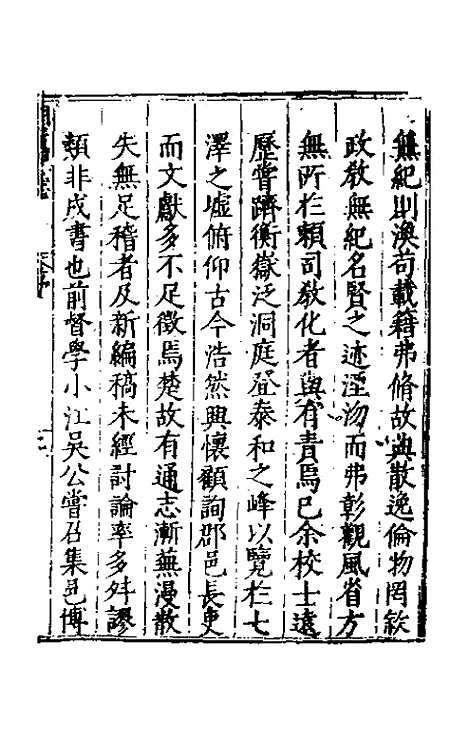 無紀則渙苟載籍弗脩故典散逸倫物罔敘
政敎無紀名賢之迹湮沕而弗彰觀風省方
無所㳺頼司敎化者與有責焉已余校士遠
歷嘗躋衡嶽泛洞庭登泰和之峰以覽於七
澤之墟俯仰古今浩然興懷顧詢郡邑長吏
而文獻多不足徵焉楚故有通志漸蕪漫散
失無足稽者及新編稿未經討論率多舛謬
類非成書也前督學小江吳公嘗召集邑博